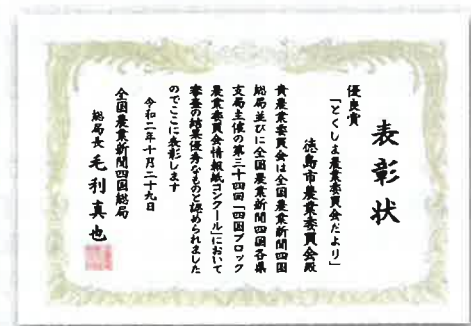 表彰状
優良賞
「とくしま農業委員会だより」
徳島市農業委員会殿
貴農業委員会は全国農業新聞四国
総局並びに全国農業新聞四国各県
支局主催の第三十四回「四国ブロック
農業委員会情報紙コンクール」において
審査の結果優秀なものと認められました
のでここに表彰します
令和二年十月二十九日
全国農業新聞四国総局
総局長 毛利真也